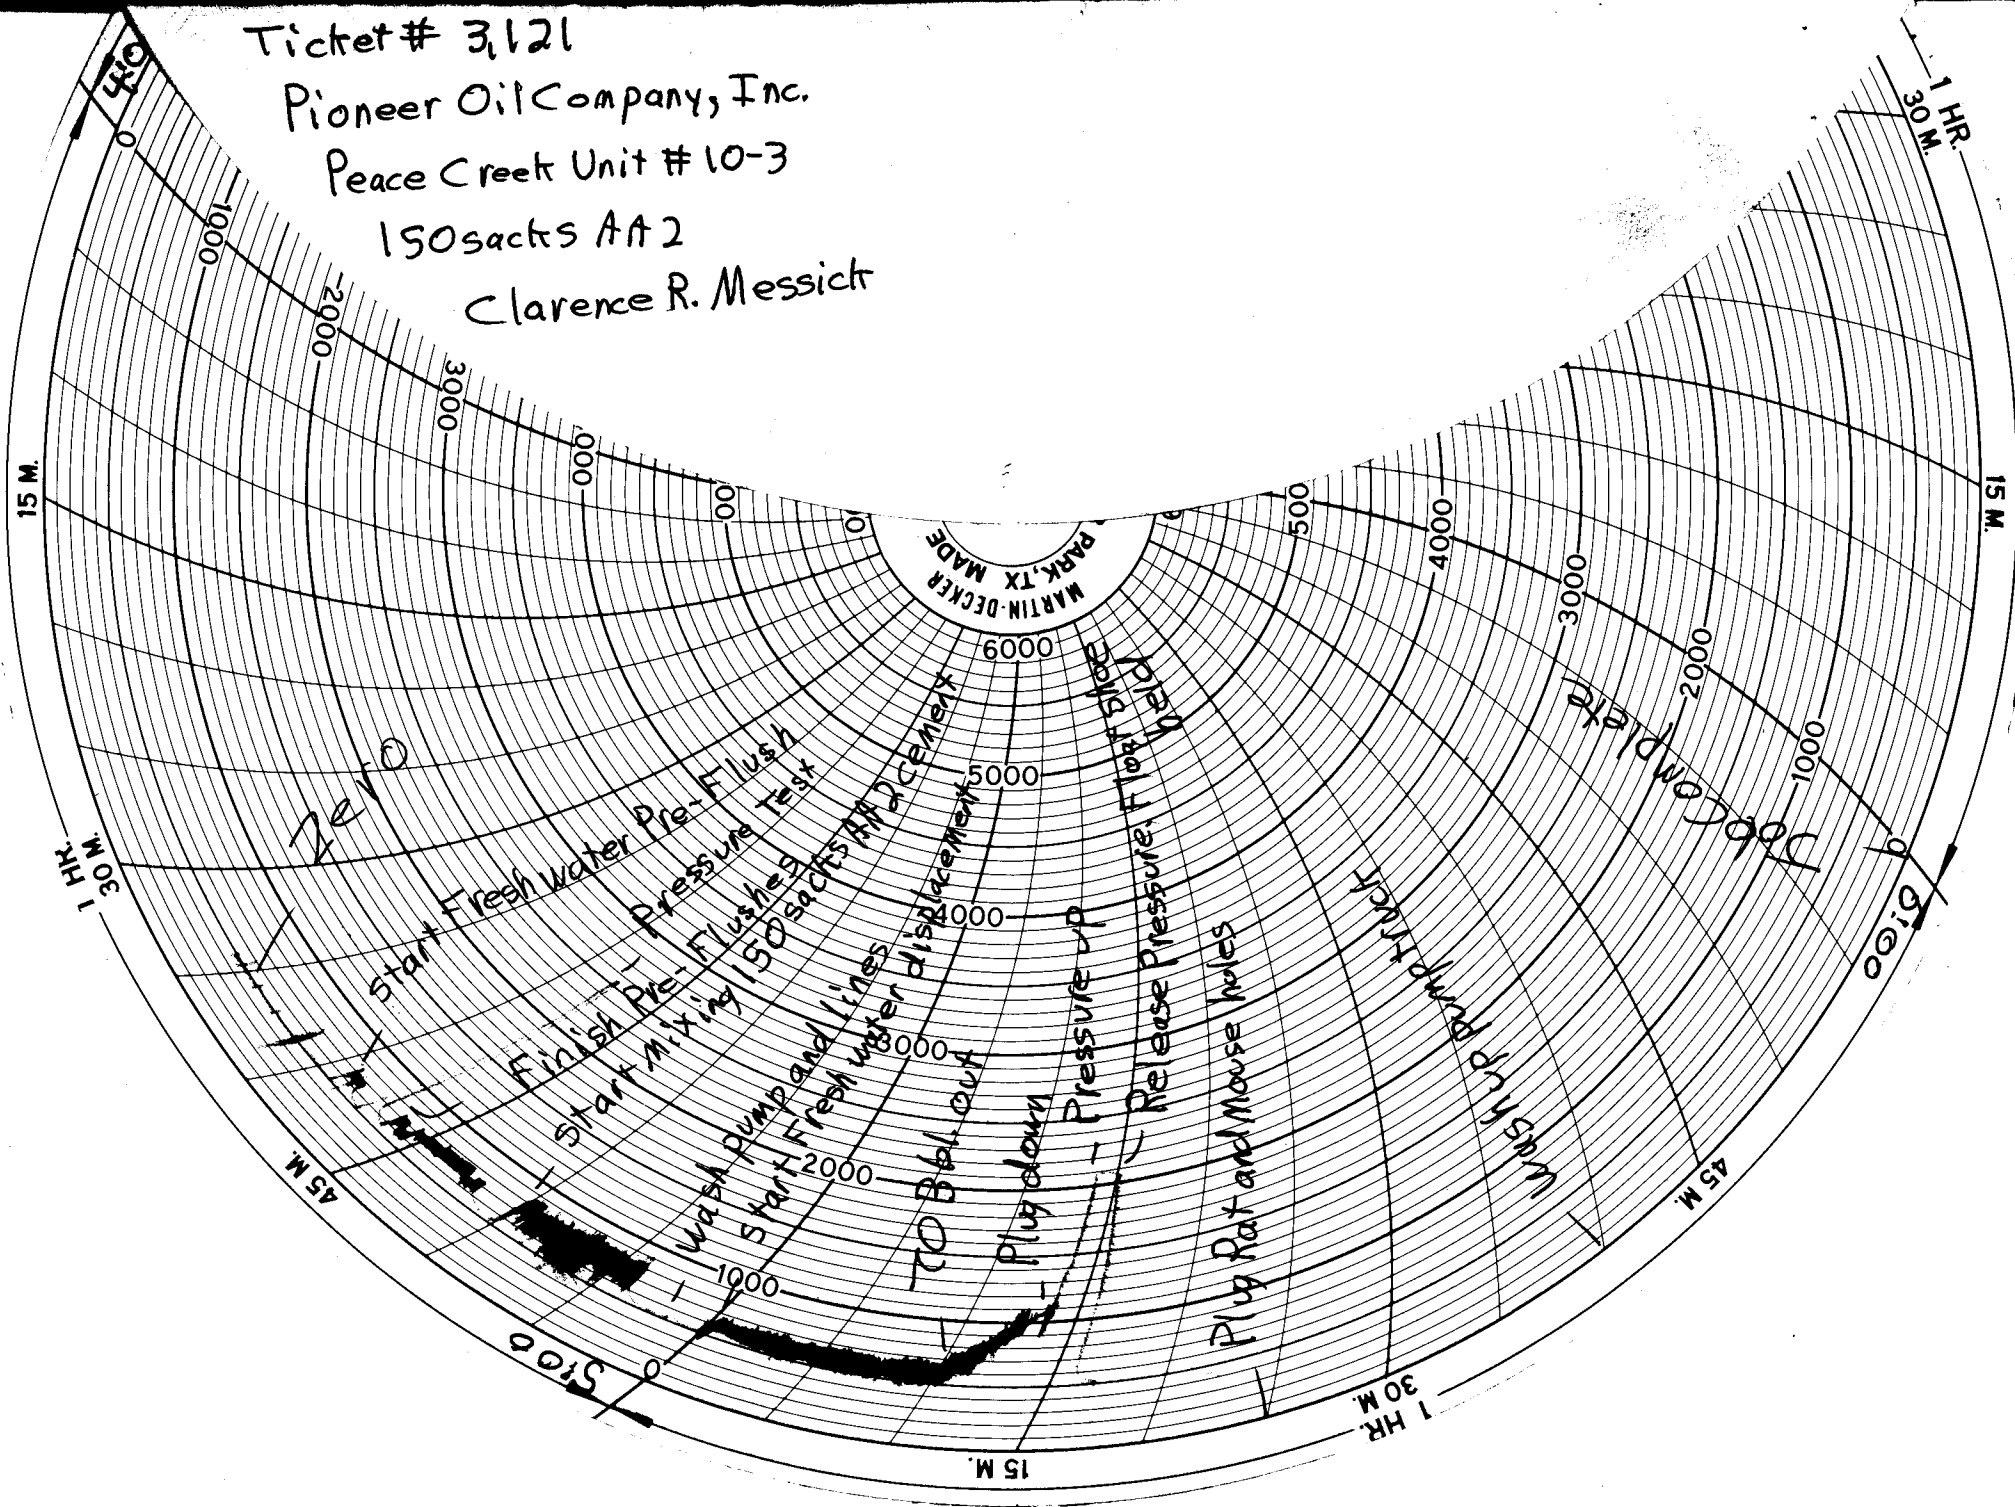 Ticket # 3,121
Pioneer Oil Company, Inc.
Peace Creek Unit # 10-3
150 sacks AA2
Clarence R. Messick
0
1000
2000
3000
000
00
0
15 M.
1 HR.
30 M.
45 M.
5:00
0
1000
2000
3000
4000
5000
6000
MARTIN-DECKER
PARK, TX MADE
15 M.
1 HR.
30 M.
45 M.
6:00
1000
2000
3000
4000
500
15 M.
1 HR.
30 M.
Zero
Start Fresh water Pre-Flush
Pressure Test
Finish Pre-Flushes
Start Mixing 150 sacks AA2 cement
Wash pump and lines
Start Fresh water displacement
70 Bbl. out
Plug down
Pressure up
Release Pressure: Float Shoe
held
Plug Rat and Mouse holes
Wash up pump truck
Job Complete